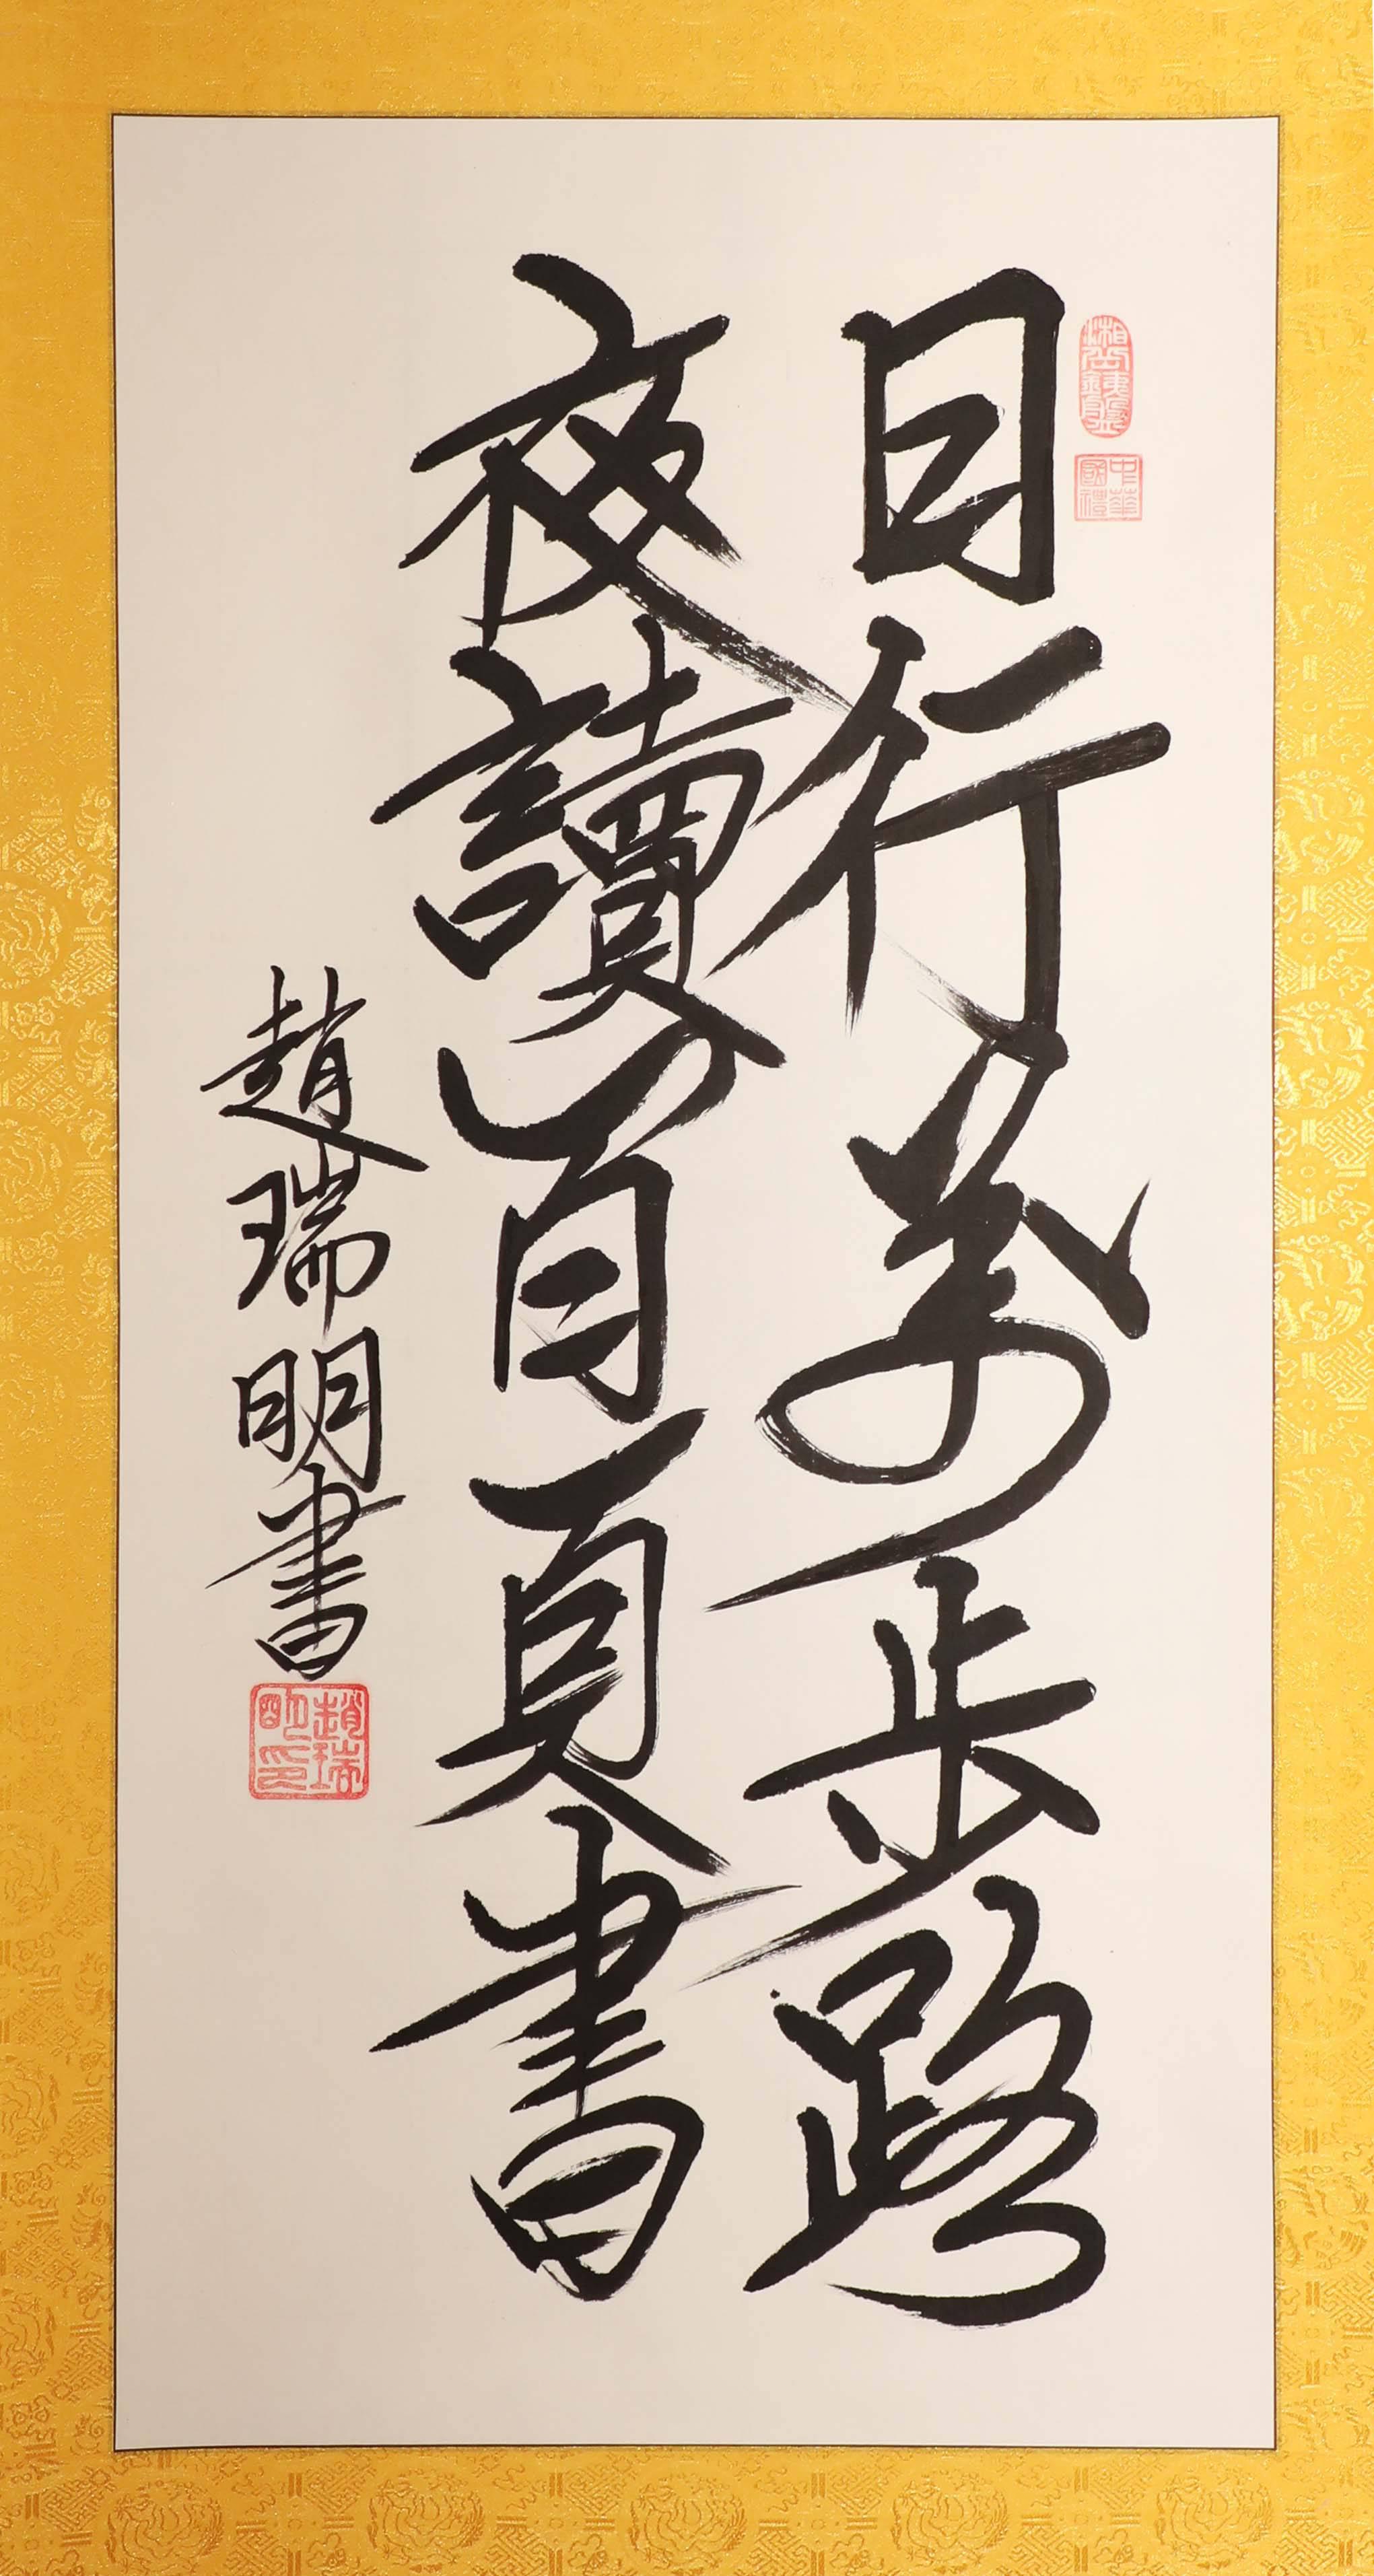 日行萬步路
夜讀百頁書
趙瑞明書
中華國禮
趙瑞明印